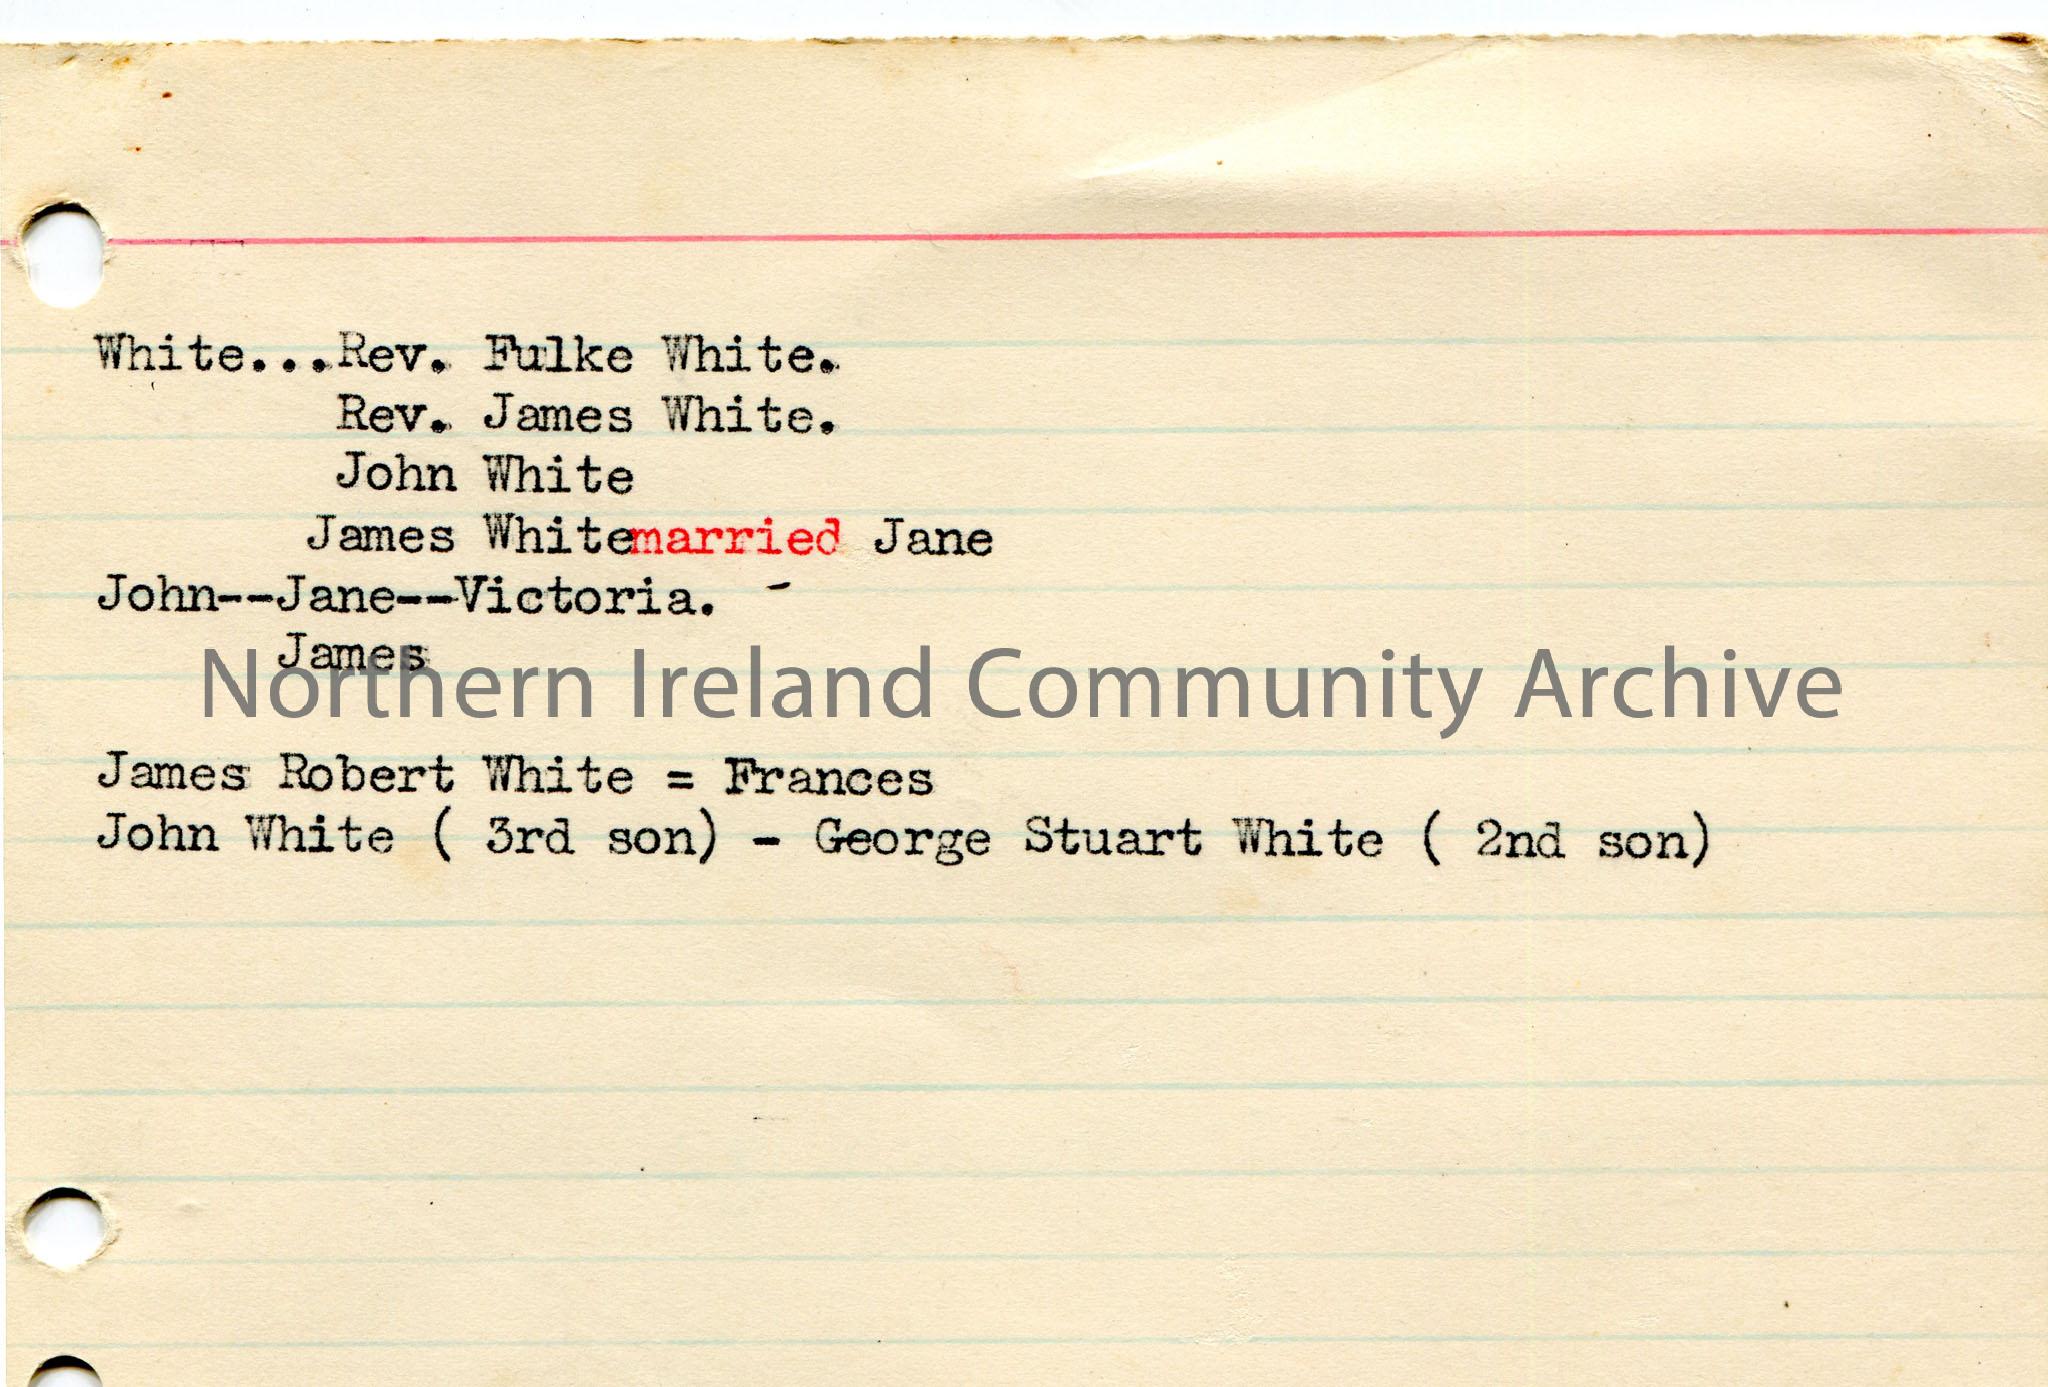 White...Rev. Fulke White.
Rev. James White.
John White
James Whitemarried Jane
John--Jane--Victoria.
James
Northern Ireland Community Archive
James Robert White = Frances
John White ( 3rd son) - George Stuart White ( 2nd son)